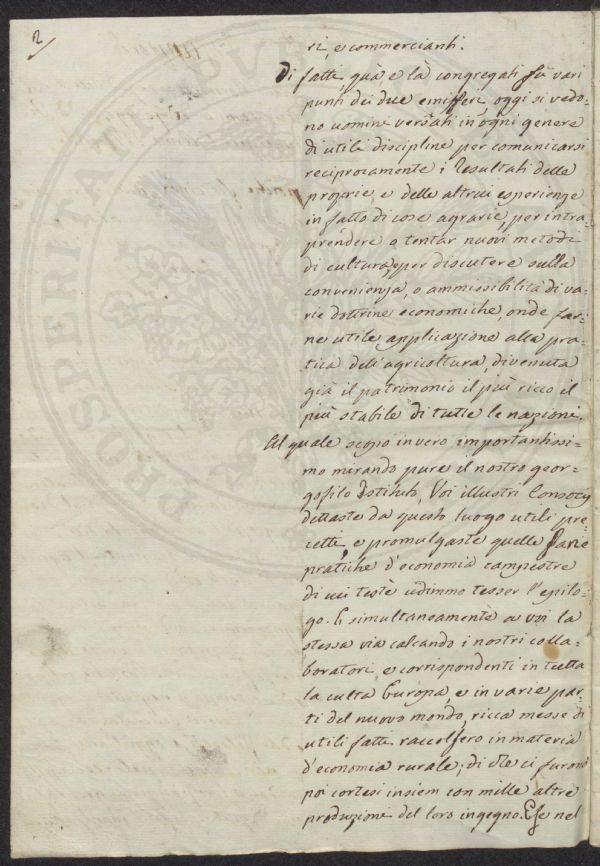 2
ri, e commercianti.
Di fatti, quà e là congregati su vari
punti dei due emisferi, oggi si vedo-
no uomini versati in ogni genere
di utili discipline per comunicarsi
reciprocamente i resultati delle
proprie, e delle altrui esperienze
in fatto di cose agrarie, per intra-
prendere o tentar nuovi metodi
di cultura, e per discutere sulla
convenienza, o ammissibilità di va-
rie dottrine economiche, onde far-
ne utile applicazione alla pra-
tica dell'agricoltura, divenuta
già il patrimonio il più ricco il
più stabile di tutte le nazioni.
Al quale scopo invero importantissi-
mo mirando pure il nostro geor-
gofilo Istituto, Voi illustri Consocj
dettaste da questo luogo utili pre-
cetti, e promulgaste quelle savie
pratiche d'economia campestre
di cui testè udimmo tesser l'epilo-
go. E simultaneamente a voi la
stessa via calcando i nostri colla-
boratori, e corrispondenti in tutta
la culta Europa, e in varie par-
ti del nuovo mondo, ricca messe di
utili fatti raccolsero in materia
d'economia rurale; di che ci furono
poi cortesi insiem con mille altre
produzioni del loro ingegno. E se nel
PROSPERITA
PUB